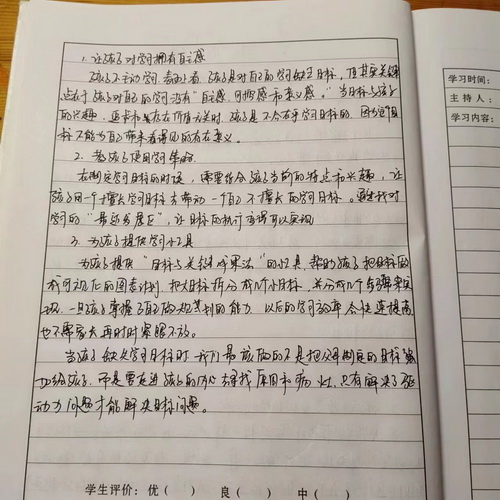 1. 让孩子对学习拥有自主感
孩子不主动学习,看似是孩子是对自己的学习缺乏目标,但其实关键
点在于孩子对自己的学习没有“自主感、可控感和意义感。”当目标与孩子
的兴趣、没有在价值无关时,孩子是不会在乎学习目标的,因为这个目
标不能为自己带来看得见的存在意义。
2. 教孩子使用学习策略
在制定学习目标的时候,需要结合孩子当前的特点和兴趣,让
孩子用一个擅长学习目标去带动一个自己不擅长的学习目标。
学习的“最近发展区”,让目标的执行变得可以实现
3. 为孩子提供学习小工具
为孩子提供“目标与关键成果法”的小工具,帮助孩子把目标
成可视化的图表计划,把大目标拆分成几个小目标,并分成几个步骤来实
现,一旦孩子掌握了自我规划的能力,以后的学习效率会快速提高
也不需家长再时时紧盯不放。
当孩子缺失学习目标时,我们最该做的不是把父母制定的目标强
加给孩子,而是要走进孩子的内心去寻找原因和病灶,只有解决了驱
动力问题才能解决目标问题。
学生评价:优( ) 良( ) 中( )
学习时间:
主持人:
学习内容: